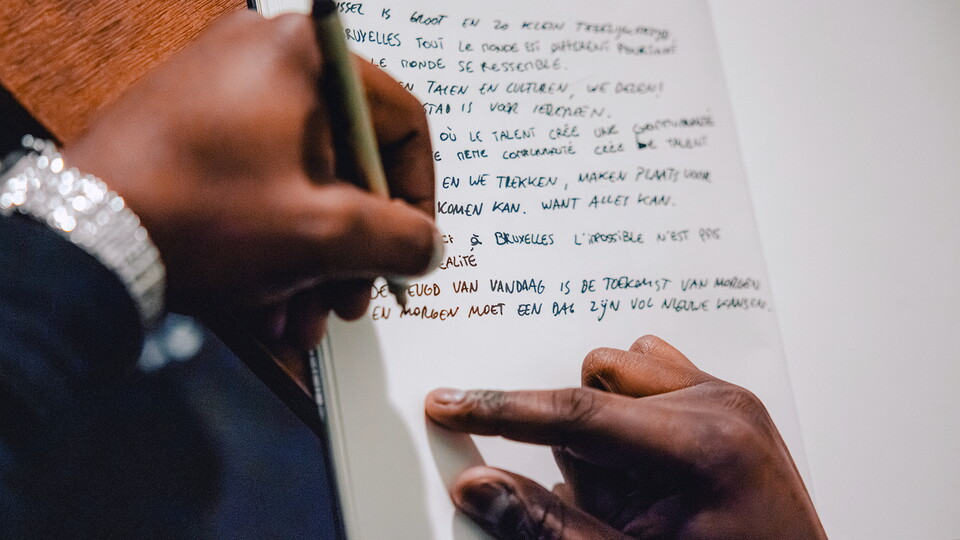 IS GROOT EN ZO KLEIN TEGELIJKERTIJD
BRUXELLES TOUT LE MONDE EST DIFFÉRENT POURTANT
LE MONDE SE RESSEMBLE.
EN TALEN EN CULTUREN, WE DELEN!
STAD IS VOOR IEDEREEN.
OÙ LE TALENT CRÉE UNE COMMUNAUTÉ
MEME COMMUNAUTÉ CRÉE LE TALENT
EN WE TREKKEN, MAKEN PLAATS VOOR
KOMEN KAN. WANT ALLES KAN.
à BRUXELLES L'IMPOSSIBLE N'EST PAS
DE JEUGD VAN VANDAAG IS DE TOEKOMST VAN MORGEN
EN MORGEN MOET EEN DAG ZIJN VOL NIEUWE KANSEN.